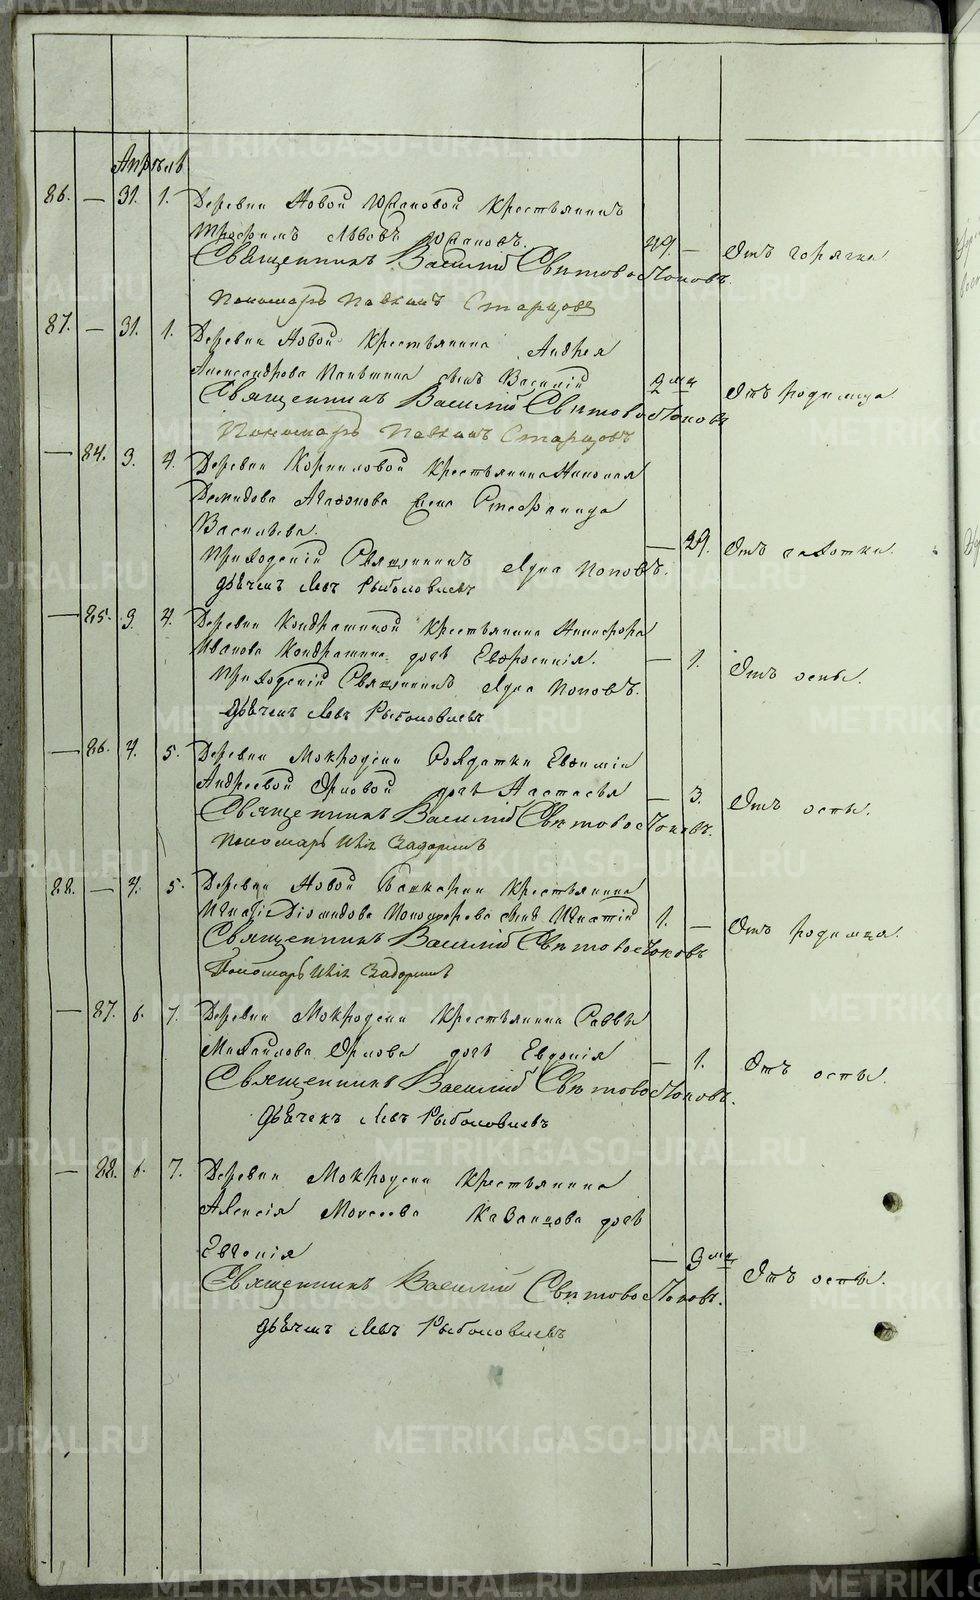 Апрѣль
86. — 31. 1. Деревни Новой Крестьянинъ
Трофимъ Львовъ 49. — Отъ горячки
Священникъ Василій Святовостоковъ.
Пономарь Павлинъ Старцовъ
87. — 31. 1. Деревни Новой Крестьянина Андрея
Александрова сынъ Василій 2 мѣ Отъ родимца
Священникъ Василій Святовостоковъ
Пономарь Павлинъ Старцовъ
— 84. 3. 4. Деревни Корниловой Крестьянина Николая
Демидова Агафонова жена Стефанида
Васильева. — 29. Отъ чахотки.
Приходскій Священникъ Попов.
Дьячекъ Левъ Рыболовлевъ
— 85. 3. 4. Деревни Кондратиной Крестьянина Никифора
Иванова Кондратина дочь Евфросинія. — 1. Отъ оспы.
Приходскій Священникъ Поповъ.
Дьячекъ Левъ Рыболовлевъ
— 86. 4. 5. Деревни Мокродски Солдатки Евфиміи
Андреевой Орловой дочь Настасья — 3. Отъ оспы.
Священникъ Василій Святовостоковъ.
Пономарь Задоринъ
88. — 4. 5. Деревни Новой Крестьянина
Игнатія Діомидова Пономарева сынъ Игнатій 1. — Отъ родимца.
Священникъ Василій Святовостоковъ
Пономарь Задоринъ
— 87. 6. 7. Деревни Мокродски Крестьянина Саввы
Михайлова Орлова дочь Евдокія — 1. Отъ оспы.
Священникъ Василій Святовостоковъ.
Дьячекъ Левъ Рыболовлевъ
— 88. 6. 7. Деревни Мокродски Крестьянина
Алексія Моисеева дочь
Евгенія — 9 мѣ Отъ оспы.
Священникъ Василій Святовостоковъ.
Дьячекъ Левъ Рыболовлевъ
METRIKI.GASO-URAL.RU